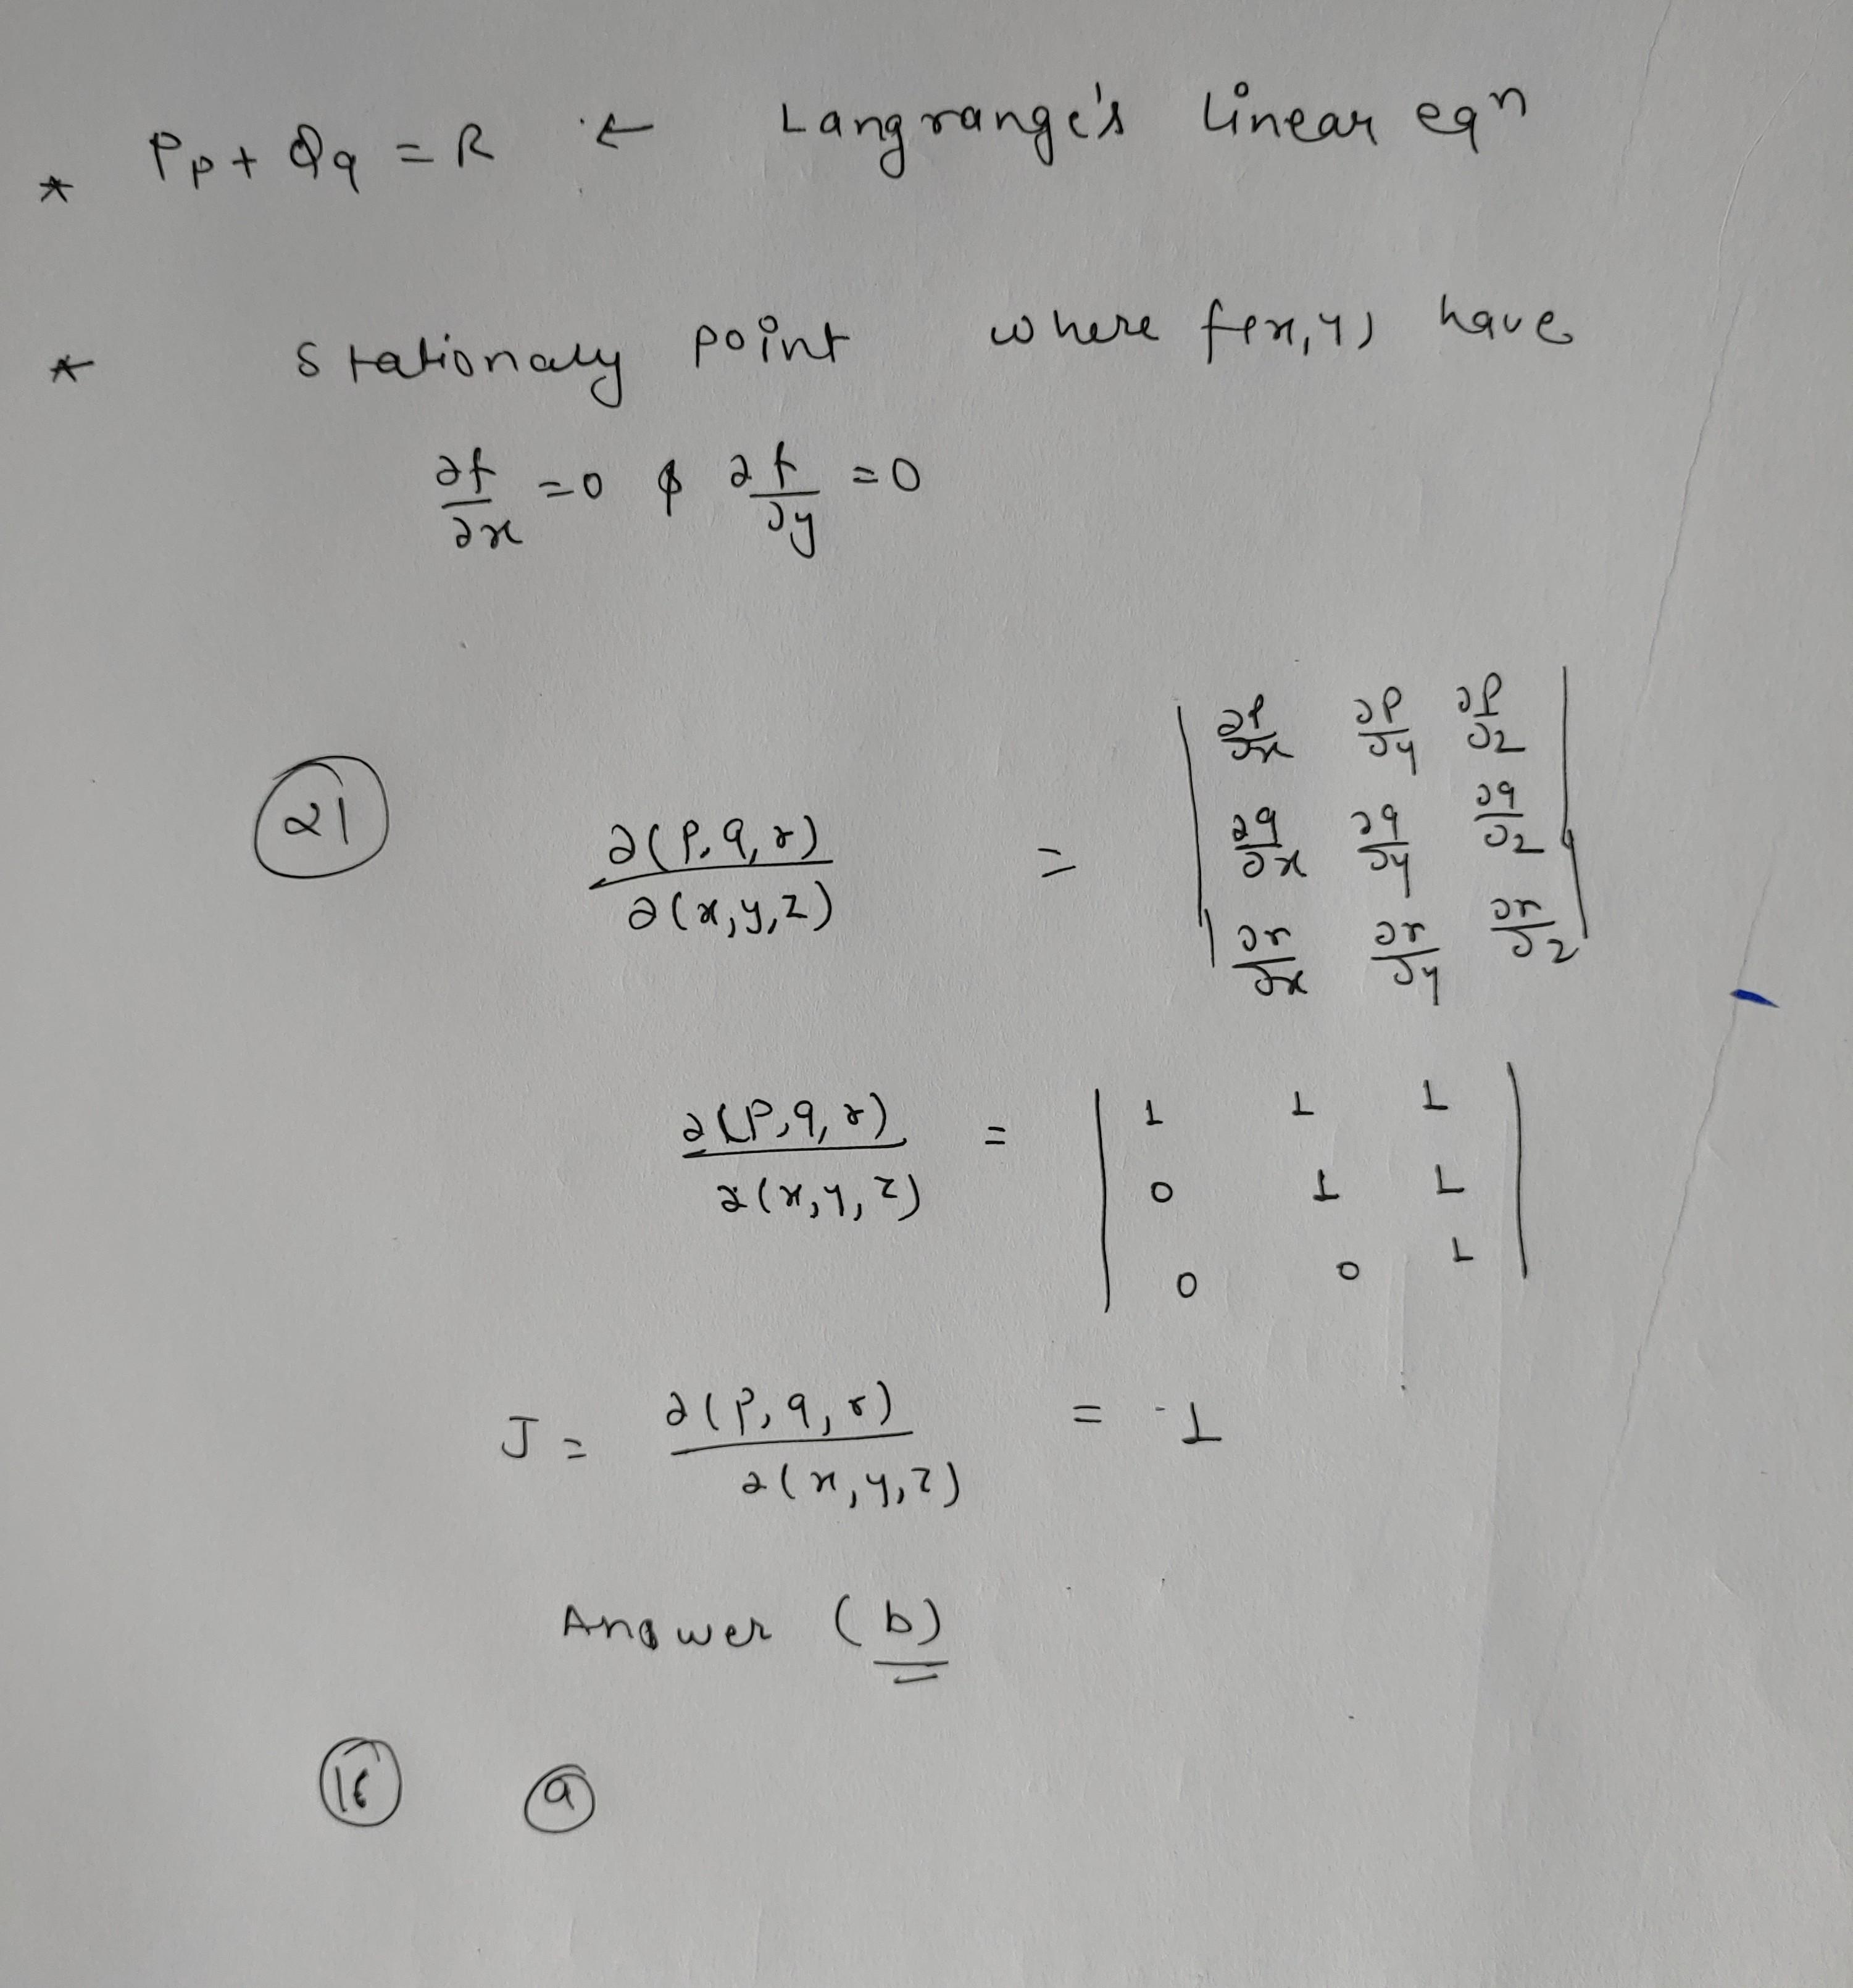 * Pp + Qq = R ← Langrange's linear eqn
* Stationary point where f(x,y) have
∂f/∂x = 0 & ∂f/∂y = 0
21 ∂(p,q,r)/∂(x,y,z) = | ∂p/∂x ∂p/∂y ∂p/∂z |
| ∂q/∂x ∂q/∂y ∂q/∂z |
| ∂r/∂x ∂r/∂y ∂r/∂z |
∂(p,q,r)/∂(x,y,z) = | 1 1 1 |
| 0 1 1 |
| 0 0 1 |
J = ∂(p,q,r)/∂(x,y,z) = 1
Answer (b)
a